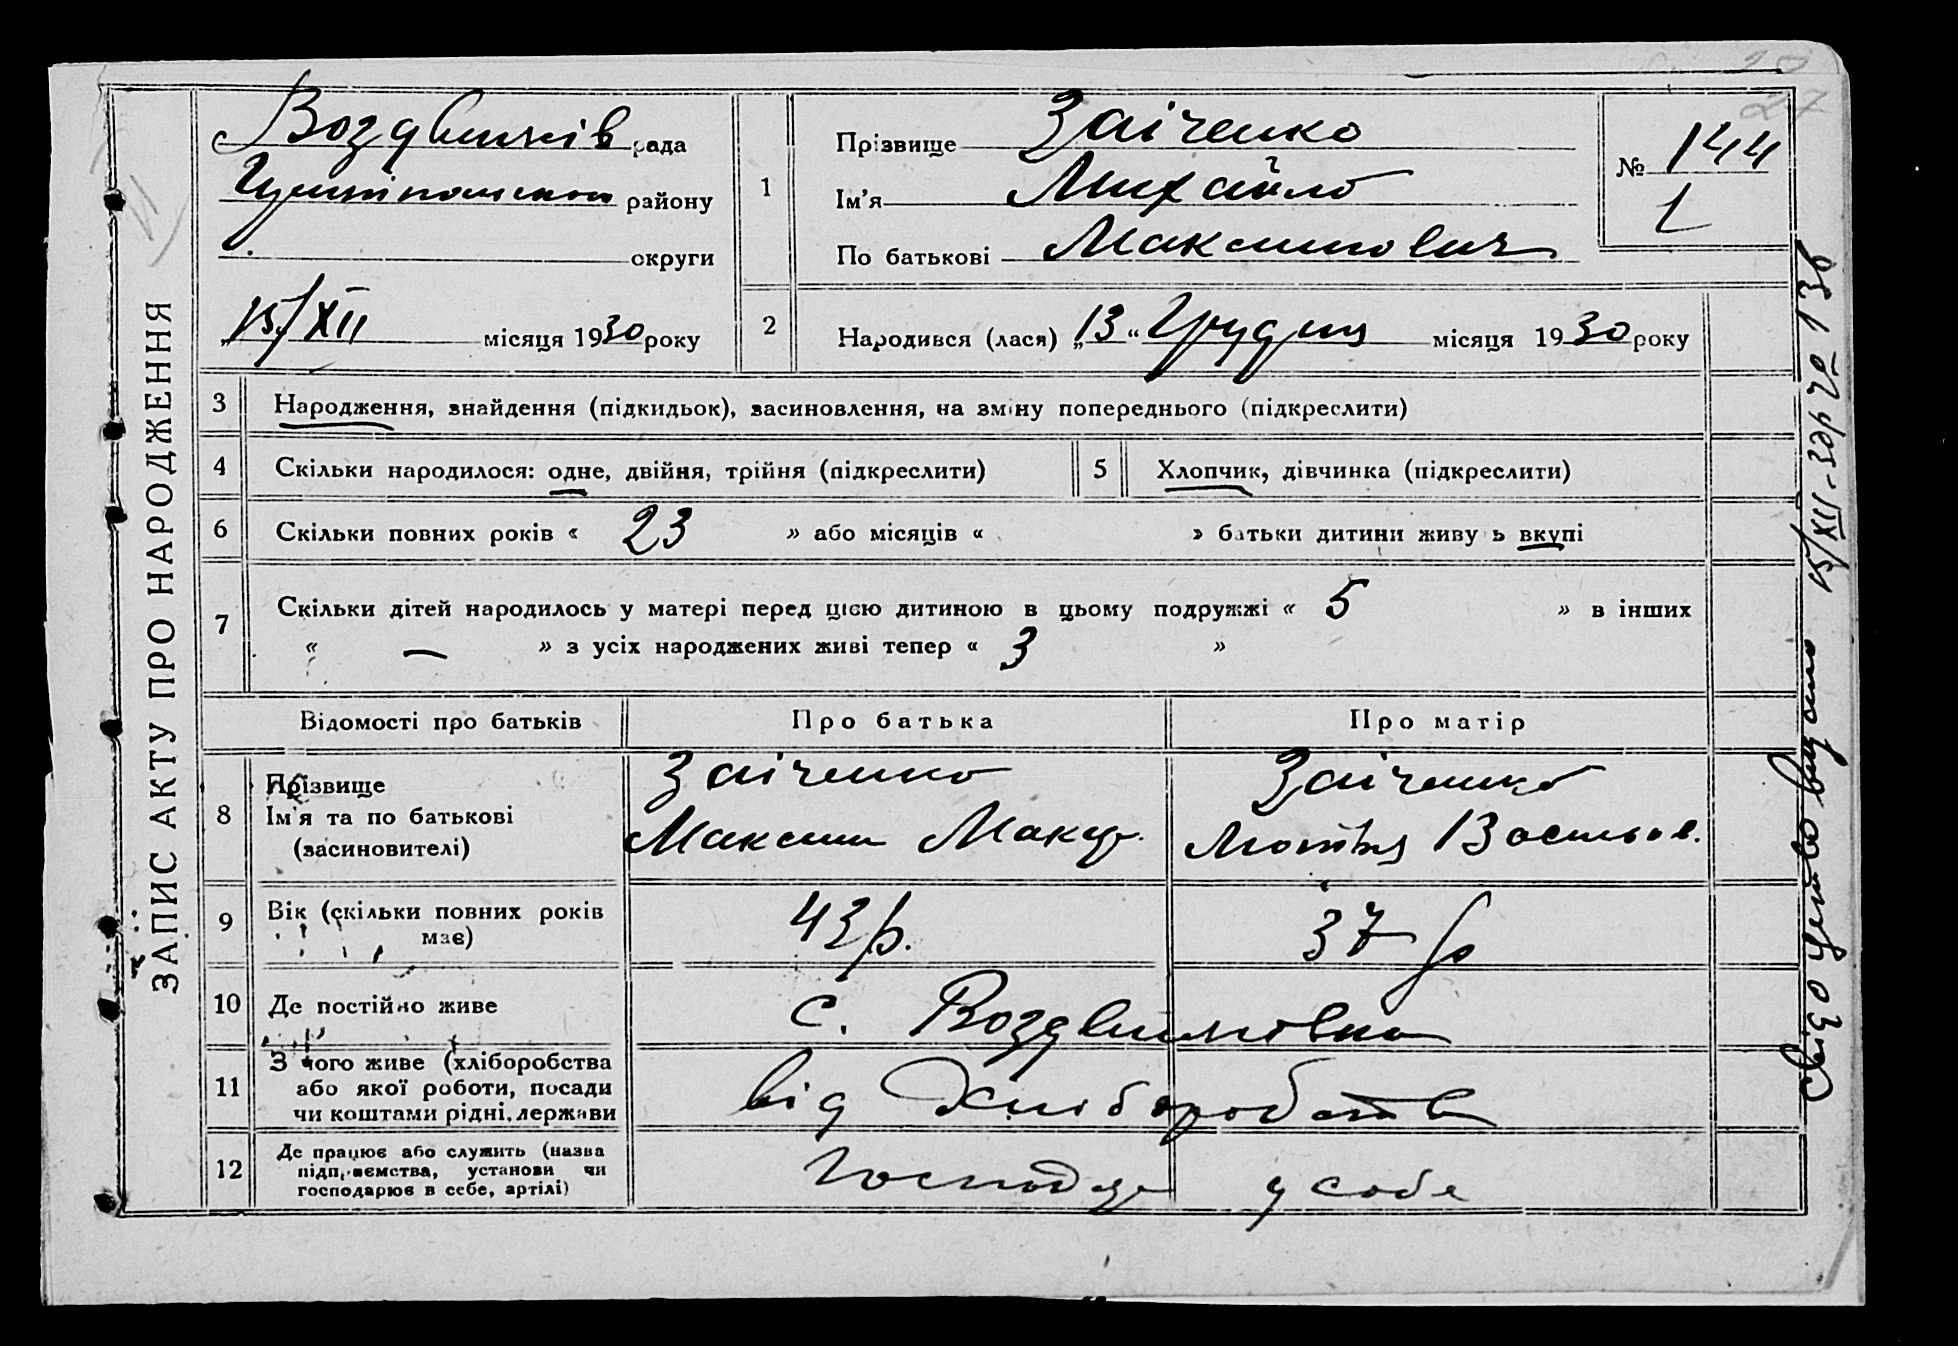 ЗАПИС АКТУ ПРО НАРОДЖЕННЯ
Воздвижків рада
району
округи
15/XII місяця 1930 року
1
Прізвище Заіченко
Ім'я Михайло
По батькові Максимович
№ 144
2
Народився (лася) „13“ Грудня місяця 1930 року
3 Народження, знайдення (підкидьок), засиновлення, на зміну попереднього (підкреслити)
4 Скільки народилося: одне, двійня, трійня (підкреслити)
5 Хлопчик, дівчинка (підкреслити)
6 Скільки повних років « 23 » або місяців « » батьки дитини живуть вкупі
7 Скільки дітей народилось у матері перед цією дитиною в цьому подружжі « 5 » в інших
« — » з усіх народжених живі тепер « 3 »
Відомості про батьків
Про батька
Про матір
8 Прізвище
Ім'я та по батькові
(засиновителі)
Заіченко
Максим Макар.
Заіченко
Мотря Васильов.
9 Вік (скільки повних років
має)
43 р.
37 р
10 Де постійно живе
с. Воздвижівка
11 З чого живе (хліборобства
або якої роботи, посади
чи коштами рідні, держави
від Хліборобств
12 Де працює або служить (назва
підприємства, установи чи
господарює в себе, артілі)
Господар у собе
15/XII-30р № 136